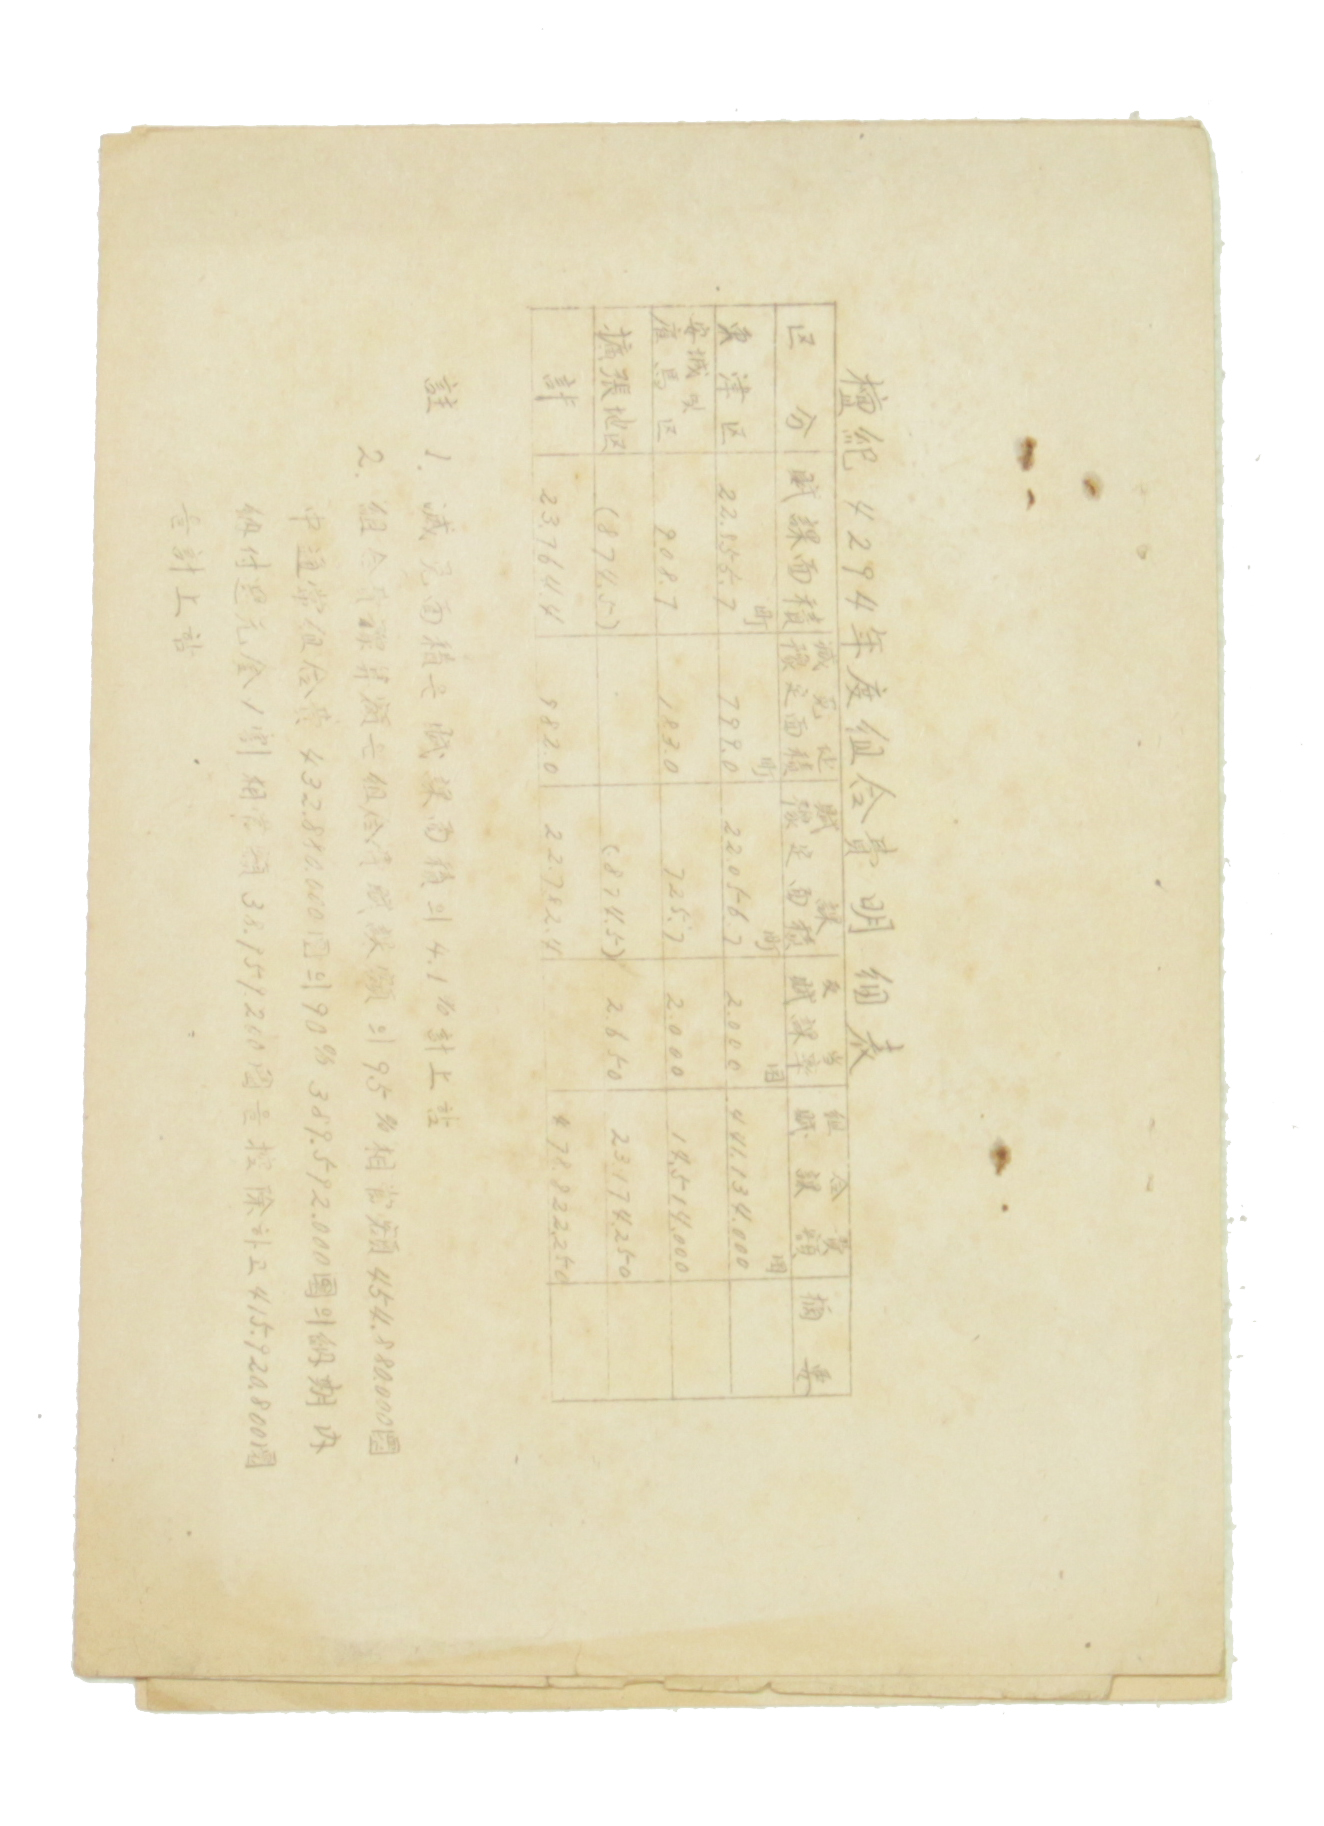 檀紀 4294年度組合費明細表
区 分 賦課面積 減免地 推定面積 賦課 推定面積 反当 賦課率 組合費 賦課額 摘要
東津区 22.855.7町 799.0町 22.056.7町 2.000圓 441.134.000圓
区 908.7 183.0 725.7 2.000 14.514.000
擴張地区 (874.5) (874.5) 2.650 23.174.250
計 23.764.4 982.0 22.782.4 478.822.250
註 1. 減免面積은 賦課面積의 4.1%計上함
2. 組合費 額은 組合費賦課額의 95%相当額 454.880.000圓
中通常組合費 432.880.000圓의 90% 389.592.000圓의 納期内
納付 元金 1割相当額 38.959.200圓을 控除하고 415.920.800圓
을 計上함